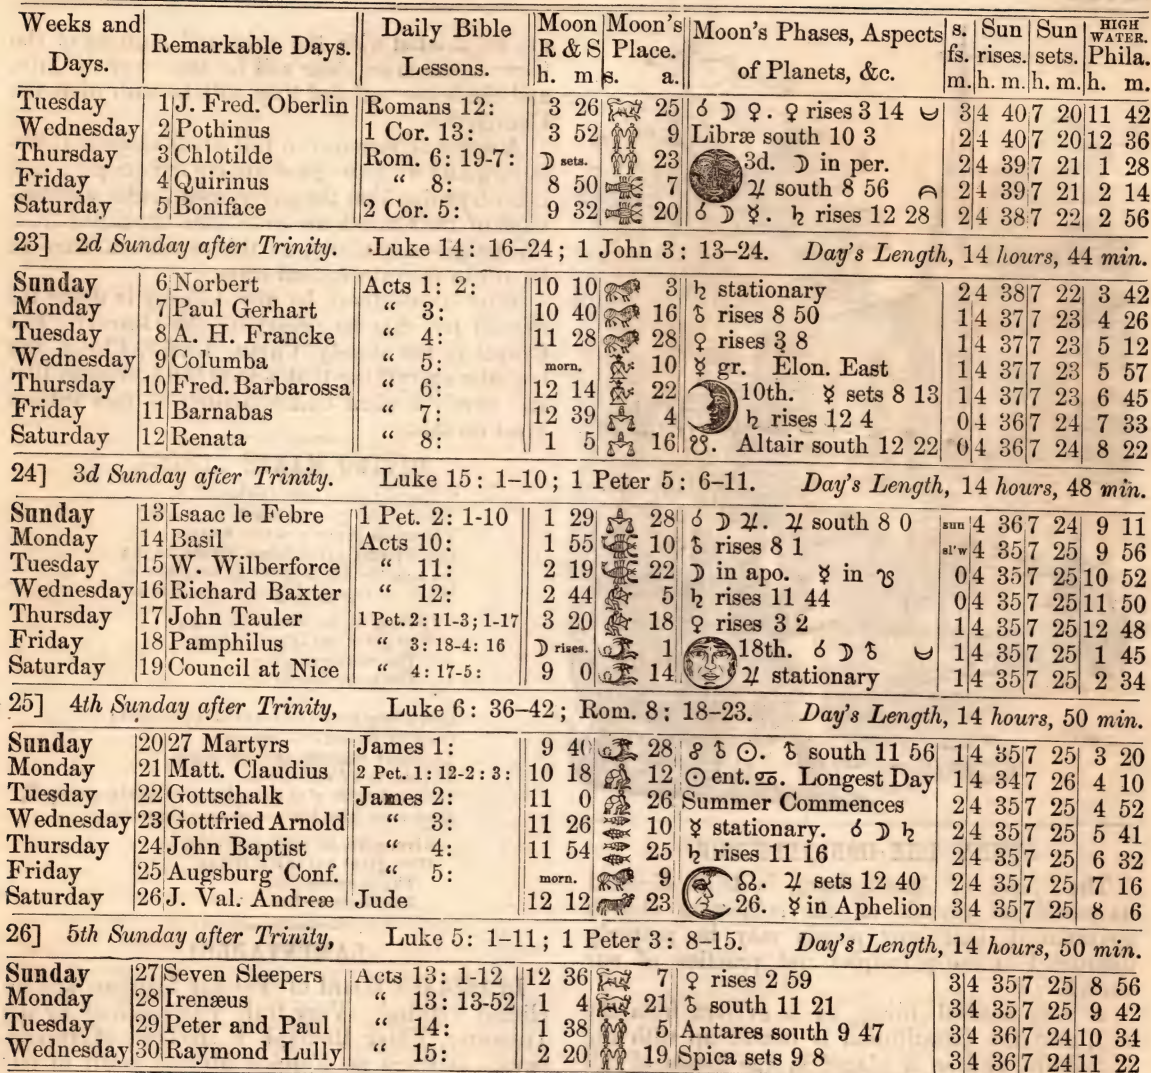 Weeks and Days. Remarkable Days. Daily Bible Lessons. Moon R & S h. m Moon's Place. s. a. Moon's Phases, Aspects of Planets, &c. s. fs. m. Sun rises. h. m. Sun sets. h. m. HIGH WATER. Phila. h. m.
Tuesday 1 J. Fred. Oberlin Romans 12: 3 26 25 ☌ ☽ ♀. ♀ rises 3 14 3 4 40 7 20 11 42
Wednesday 2 Pothinus 1 Cor. 13: 3 52 9 Libræ south 10 3 2 4 40 7 20 12 36
Thursday 3 Chlotilde Rom. 6: 19-7: ☽ sets. 23 3d. ☽ in per. 2 4 39 7 21 1 28
Friday 4 Quirinus “ 8: 8 50 7 ♃ south 8 56 2 4 39 7 21 2 14
Saturday 5 Boniface 2 Cor. 5: 9 32 20 ☌ ☽ ☿. ♄ rises 12 28 2 4 38 7 22 2 56
23] 2d Sunday after Trinity. Luke 14: 16–24; 1 John 3: 13–24. Day's Length, 14 hours, 44 min.
Sunday 6 Norbert Acts 1: 2: 10 10 3 ♄ stationary 2 4 38 7 22 3 42
Monday 7 Paul Gerhart “ 3: 10 40 16 ♁ rises 8 50 1 4 37 7 23 4 26
Tuesday 8 A. H. Francke “ 4: 11 28 28 ♀ rises 3 8 1 4 37 7 23 5 12
Wednesday 9 Columba “ 5: morn. 10 ☿ gr. Elon. East 1 4 37 7 23 5 57
Thursday 10 Fred. Barbarossa “ 6: 12 14 22 10th. ☿ sets 8 13 1 4 37 7 23 6 45
Friday 11 Barnabas “ 7: 12 39 4 ♄ rises 12 4 0 4 36 7 24 7 33
Saturday 12 Renata “ 8: 1 5 16 ☋. Altair south 12 22 0 4 36 7 24 8 22
24] 3d Sunday after Trinity. Luke 15: 1–10; 1 Peter 5: 6–11. Day's Length, 14 hours, 48 min.
Sunday 13 Isaac le Febre 1 Pet. 2: 1-10 1 29 28 ☌ ☽ ♃. ♃ south 8 0 sun 4 36 7 24 9 11
Monday 14 Basil Acts 10: 1 55 10 ♁ rises 8 1 sl'w 4 35 7 25 9 56
Tuesday 15 W. Wilberforce “ 11: 2 19 22 ☽ in apo. ☿ in ☋ 0 4 35 7 25 10 52
Wednesday 16 Richard Baxter “ 12: 2 44 5 ♄ rises 11 44 0 4 35 7 25 11 50
Thursday 17 John Tauler 1 Pet. 2: 11-3; 1-17 3 20 18 ♀ rises 3 2 1 4 35 7 25 12 48
Friday 18 Pamphilus “ 3: 18-4: 16 ☽ rises. 1 18th. ☌ ☽ ♁ 1 4 35 7 25 1 45
Saturday 19 Council at Nice “ 4: 17-5: 9 0 14 ♃ stationary 1 4 35 7 25 2 34
25] 4th Sunday after Trinity, Luke 6: 36–42; Rom. 8: 18–23. Day's Length, 14 hours, 50 min.
Sunday 20 27 Martyrs James 1: 9 40 28 ☍ ♁ ☉. ♁ south 11 56 1 4 35 7 25 3 20
Monday 21 Matt. Claudius 2 Pet. 1: 12-2: 3: 10 18 12 ☉ ent. ♋. Longest Day 1 4 34 7 26 4 10
Tuesday 22 Gottschalk James 2: 11 0 26 Summer Commences 2 4 35 7 25 4 52
Wednesday 23 Gottfried Arnold “ 3: 11 26 10 ☿ stationary. ☌ ☽ ♄ 2 4 35 7 25 5 41
Thursday 24 John Baptist “ 4: 11 54 25 ♄ rises 11 16 2 4 35 7 25 6 32
Friday 25 Augsburg Conf. “ 5: morn. 9 ☊. ♃ sets 12 40 2 4 35 7 25 7 16
Saturday 26 J. Val. Andreæ Jude 12 12 23 26. ☿ in Aphelion 3 4 35 7 25 8 6
26] 5th Sunday after Trinity, Luke 5: 1–11; 1 Peter 3: 8–15. Day's Length, 14 hours, 50 min.
Sunday 27 Seven Sleepers Acts 13: 1-12 12 36 7 ♀ rises 2 59 3 4 35 7 25 8 56
Monday 28 Irenæus “ 13: 13-52 1 4 21 ♁ south 11 21 3 4 35 7 25 9 42
Tuesday 29 Peter and Paul “ 14: 1 38 5 Antares south 9 47 3 4 36 7 24 10 34
Wednesday 30 Raymond Lully “ 15: 2 20 19 Spica sets 9 8 3 4 36 7 24 11 22